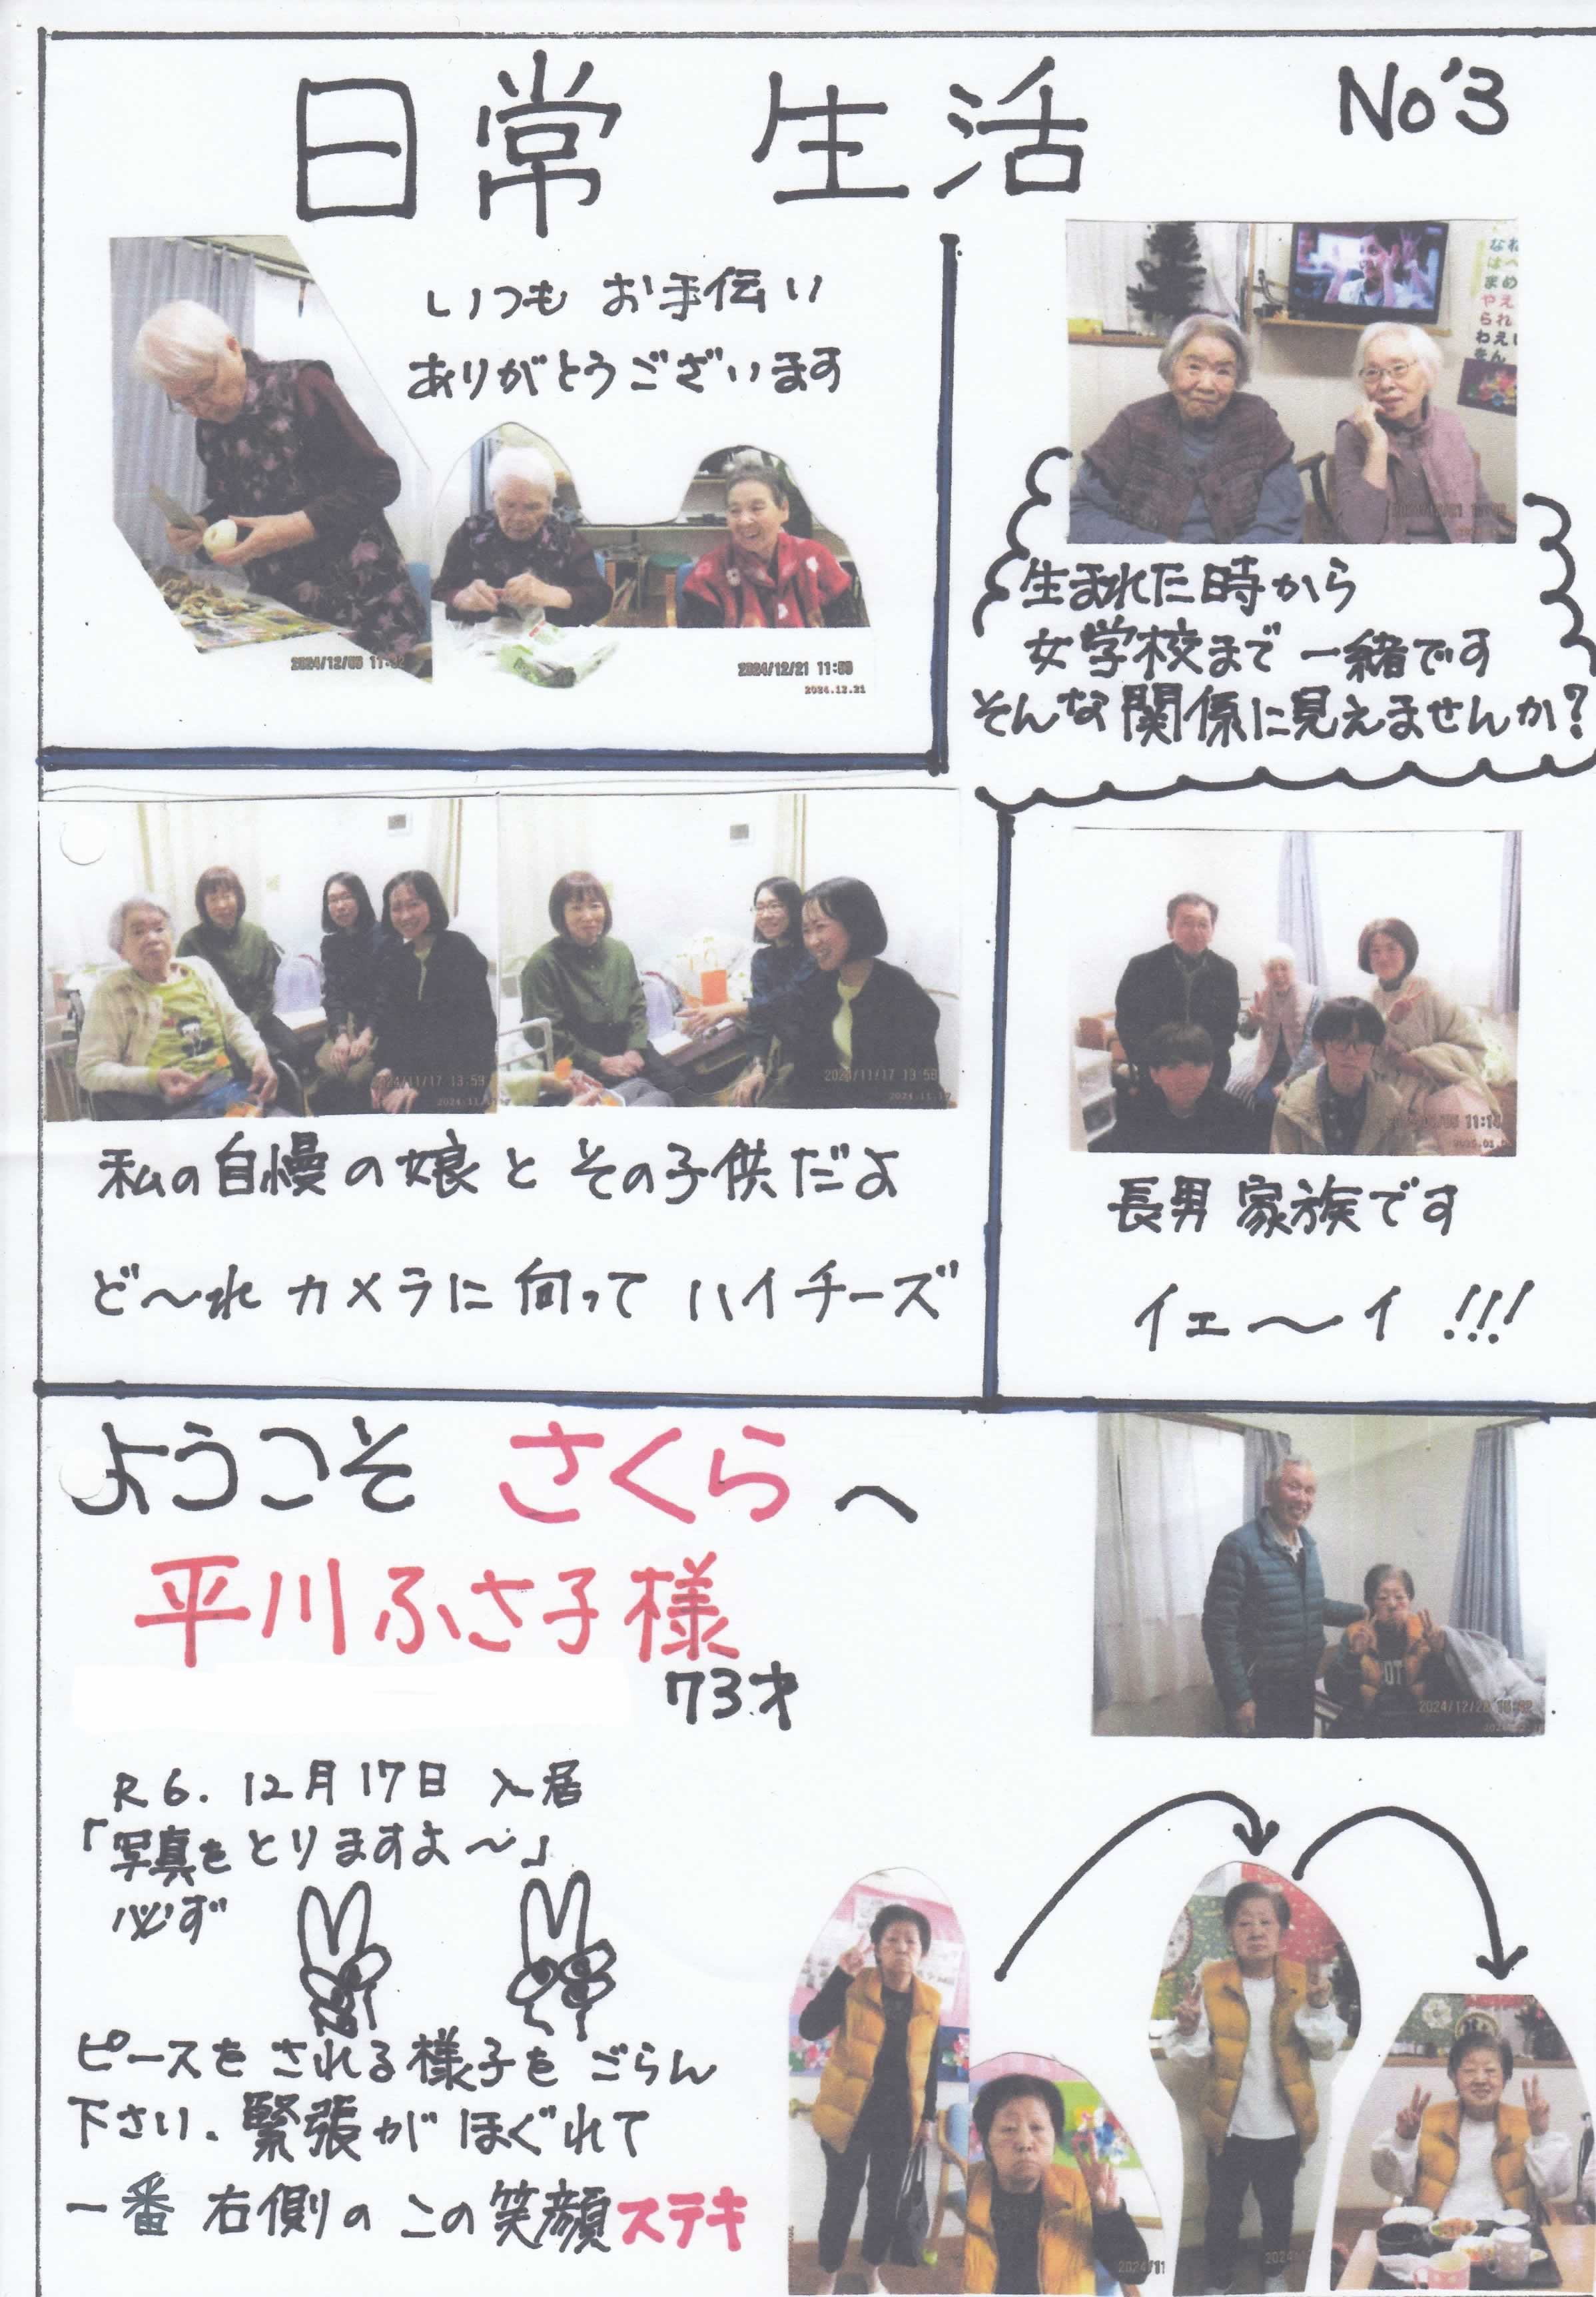 日常 生活
No'3
いつも お手伝い
ありがとうございます
2024/12/21 11:59
2024.12.21
生まれた時から
女学校まで 一緒です
そんな関係に見えませんか?
2024/11/17 13:59
2024/11/17 13:58
私の自慢の娘と その子供だよ
ど〜れ カメラに 向って ハイチーズ
11:14
長男 家族です
イェ〜イ !!!
ようこそ さくらへ
平川ふさ子様
73才
2024/12/28
R6. 12月17日 入居
「写真をとりますよ〜」
必ず
ピースを される様子を ごらん
下さい。緊張が ほぐれて
一番 右側の この笑顔ステキ